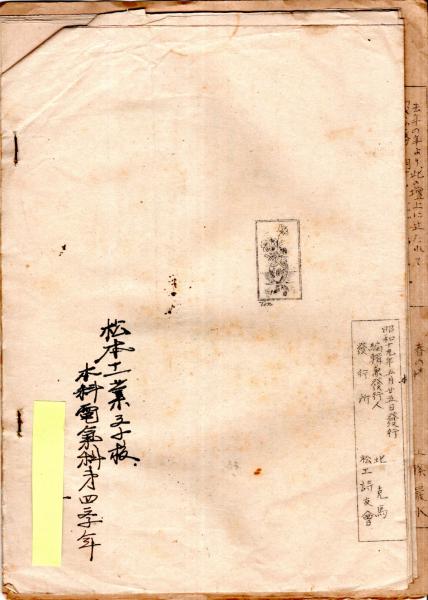 去年の年より此の壇上に立たれて
春の
昭和十九年五月廿五日發行
編輯兼發行人 北克馬
發行所 松工詩友會
松本工業学校
本科電氣科第四学年